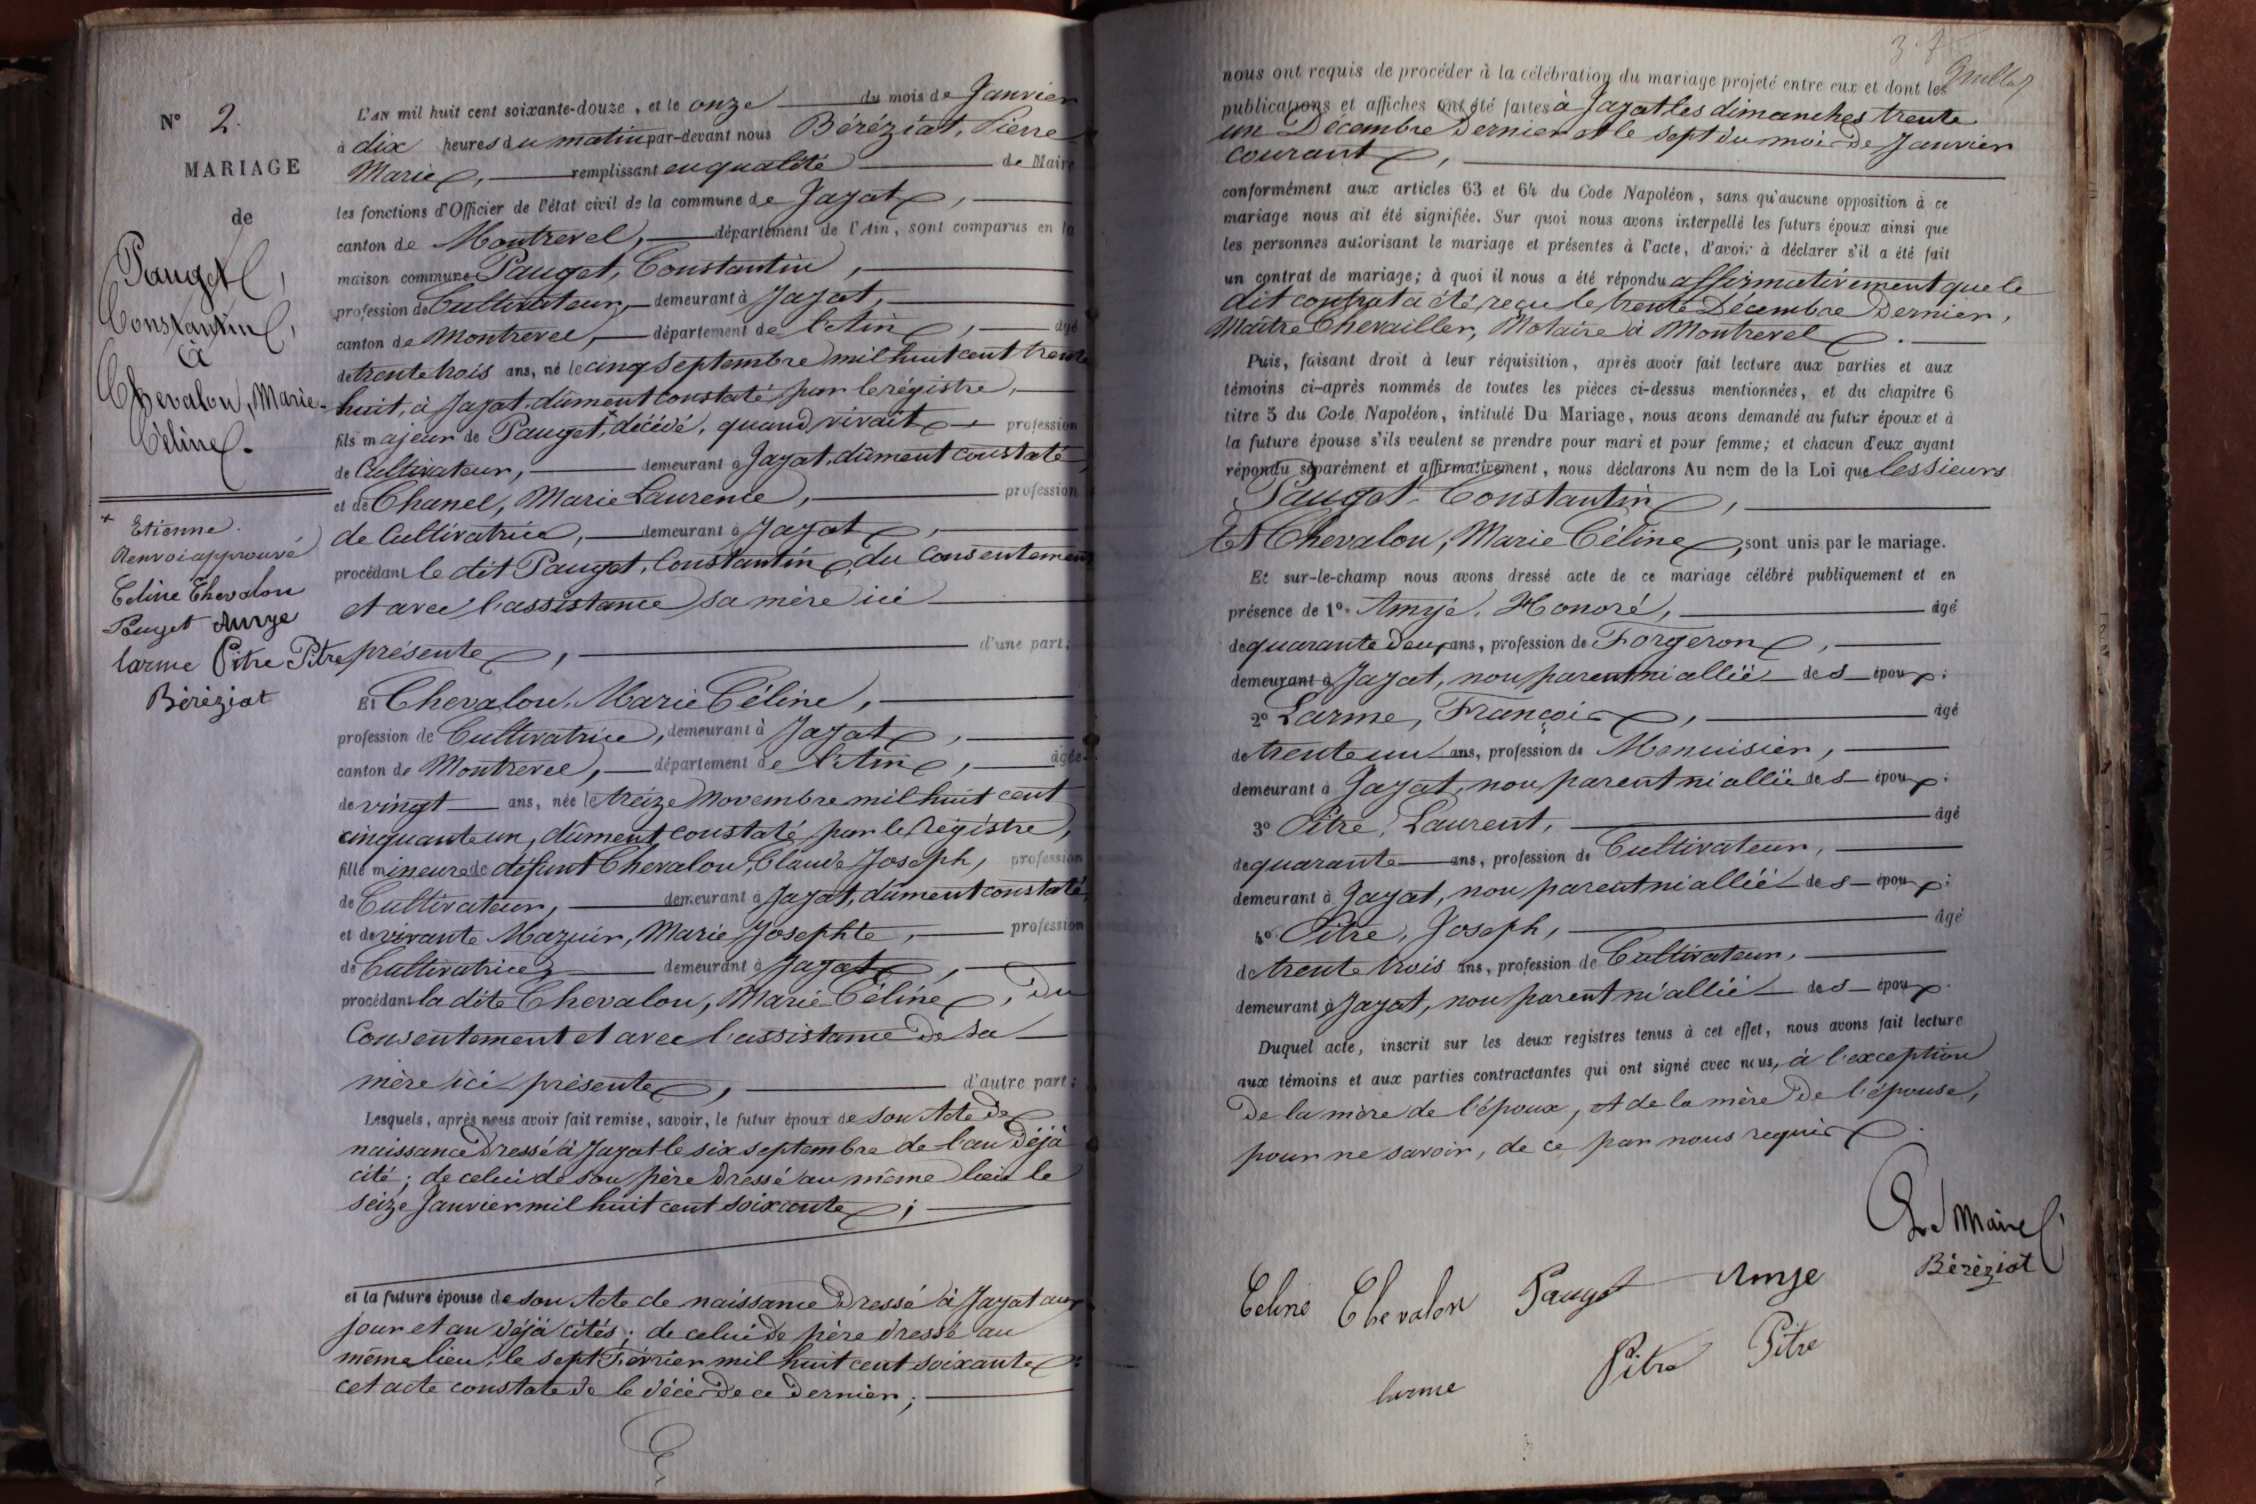 N° 2.
MARIAGE
de
Pauget,
Constantin,
à
Chevalon, Marie-
Céline.
+ Etienne.
Renvoi approuvé
Celine Chevalon
Pauget Amye
larme Pitre Pitre
Béréziat
L'AN mil huit cent soixante-douze, et le onze du mois de Janvier
à dix heures du matin par-devant nous Béréziat, Pierre
Marie, remplissant en qualité de Maire
les fonctions d'Officier de l'état civil de la commune de Jayat,
canton de Montrevel, département de l'Ain, sont comparus en la
maison commune Pauget, Constantin,
profession de Cultivateur, demeurant à Jayat,
canton de Montrevel, département de l'Ain, âgé
de trente trois ans, né le cinq Septembre mil huit cent trente
huit, à Jayat, dûment constaté par le régistre,
fils majeur de Pauget,+ décédé, quand vivait profession
de Cultivateur, demeurant à Jayat, dûment constaté,
et de Chanel, Marie Laurence, profession
de Cultivatrice, demeurant à Jayat,
procédant le dit Pauget, Constantin, du consentement
et avec l'assistance sa mère ici
présente, d'une part;
Et Chevalon, Marie Céline,
profession de Cultivatrice, demeurant à Jayat,
canton de Montrevel, département de l'Ain, âgée
de vingt ans, née le treize Novembre mil huit cent
cinquante un, dûment constaté par le régistre,
fille mineure de défunt Chevalon, Claude Joseph, profession
de Cultivateur, demeurant à Jayat, dûment constaté,
et de vivante Mazuir, Marie Josephte, profession
de Cultivatrice, demeurant à Jayat,
procédant la dite Chevalon, Marie Céline, du
consentement et avec l'assistance de sa
mère ici présente, d'autre part;
Lesquels, après nous avoir fait remise, savoir, le futur époux de son Acte de
naissance dressé à Jayat le six septembre de l'an déjà
cité; de celui de son père dressé au même lieu le
seize Janvier mil huit cent soixante;
et la future épouse de son Acte de naissance dressé à Jayat aux
jour et an déjà cités; de celui de père dressé au
même lieu, le sept Février mil huit cent soixante
cet acte constate de le décès de ce dernier;
nous ont requis de procéder à la célébration du mariage projeté entre eux et dont les
publications et affiches ont été faites à Jayat les dimanches trente
un Décembre dernier et le sept du mois de Janvier
courant,
conformément aux articles 63 et 64 du Code Napoléon, sans qu'aucune opposition à ce
mariage nous ait été signifiée. Sur quoi nous avons interpellé les futurs époux ainsi que
les personnes autorisant le mariage et présentes à l'acte, d'avoir à déclarer s'il a été fait
un contrat de mariage; à quoi il nous a été répondu affirmativement que le
dit contrat a été reçu le trente Décembre dernier,
Maître Chevailler, Notaire à Montrevel.
Puis, faisant droit à leur réquisition, après avoir fait lecture aux parties et aux
témoins ci-après nommés de toutes les pièces ci-dessus mentionnées, et du chapitre 6
titre 5 du Code Napoléon, intitulé Du Mariage, nous avons demandé au futur époux et à
la future épouse s'ils veulent se prendre pour mari et pour femme; et chacun d'eux ayant
répondu séparément et affirmativement, nous déclarons Au nom de la Loi que les sieurs
Pauget Constantin,
Et Chevalon, Marie Céline, sont unis par le mariage.
Et sur-le-champ nous avons dressé acte de ce mariage célébré publiquement et en
présence de 1°. Amye, Honoré, âgé
de quarante deux ans, profession de Forgeron,
demeurant à Jayat, non parent ni allié des époux;
2° Larme, François, âgé
de trente un ans, profession de Menuisier,
demeurant à Jayat, non parent ni allié des époux;
3° Pitre, Laurent, âgé
de quarante ans, profession de Cultivateur,
demeurant à Jayat, non parent ni allié des époux;
4° Pitre, Joseph, âgé
de trente trois ans, profession de Cultivateur,
demeurant à Jayat, non parent ni allié des époux.
Duquel acte, inscrit sur les deux registres tenus à cet effet, nous avons fait lecture
aux témoins et aux parties contractantes qui ont signé avec nous, à l'exception
de la mère de l'époux, et de la mère de l'épouse,
pour ne savoir, de ce par nous requis.
Le Maire
Béréziat
Celine Chevalon Pauget Amye
larme Pitre Pitre